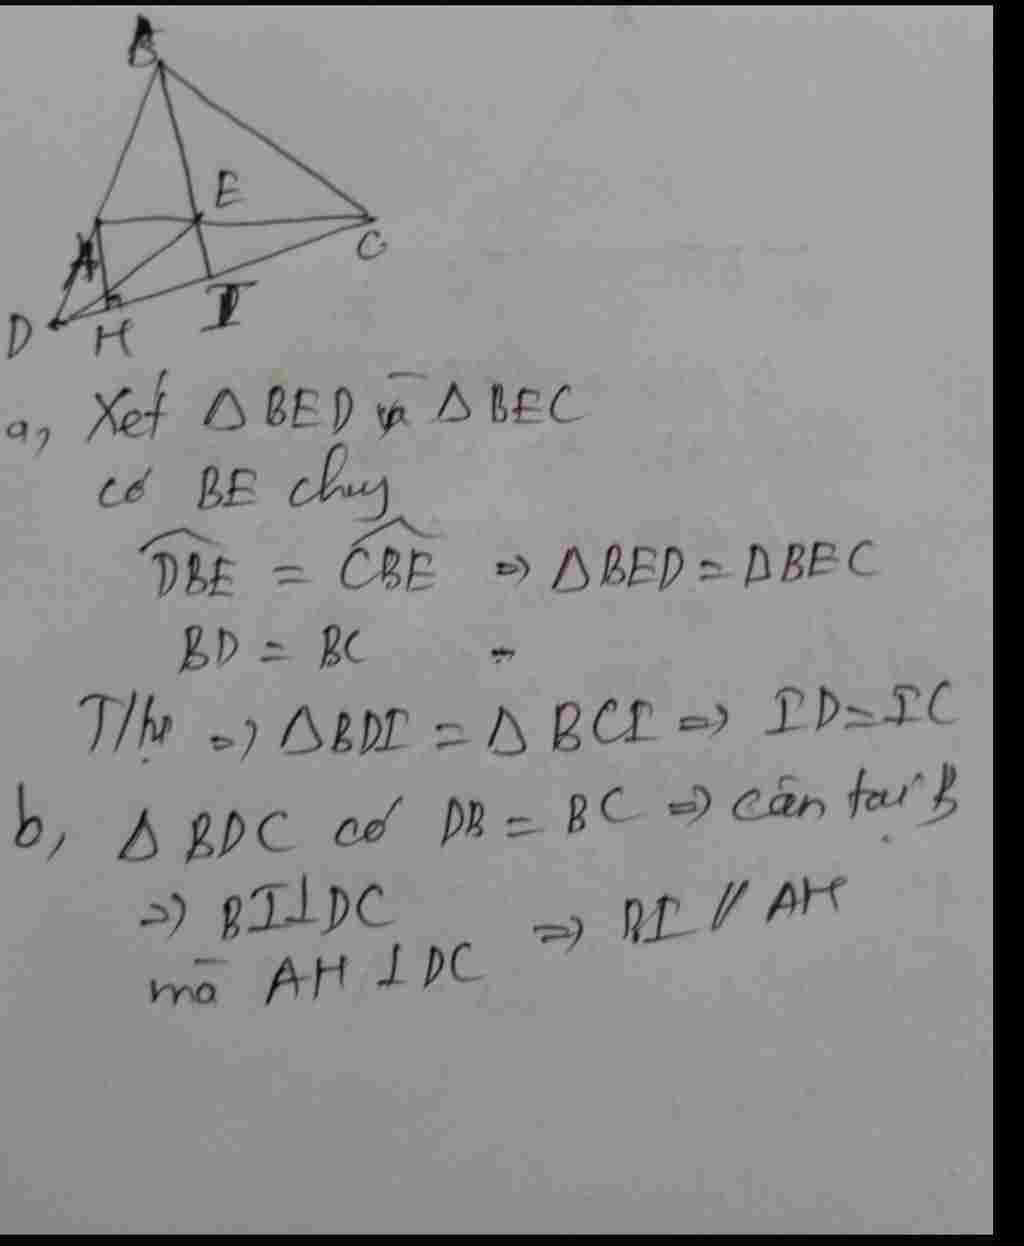 B
E
A
C
D
H
I
a, Xét Δ BED và Δ BEC
có BE chung
DBE = CBE => ΔBED = ΔBEC
BD = BC
T/tự => ΔBDI = Δ BCI => ID = IC
b, Δ BDC có DB = BC => cân tại B
=> BI⊥DC
=> BI // AH
mà AH ⊥ DC